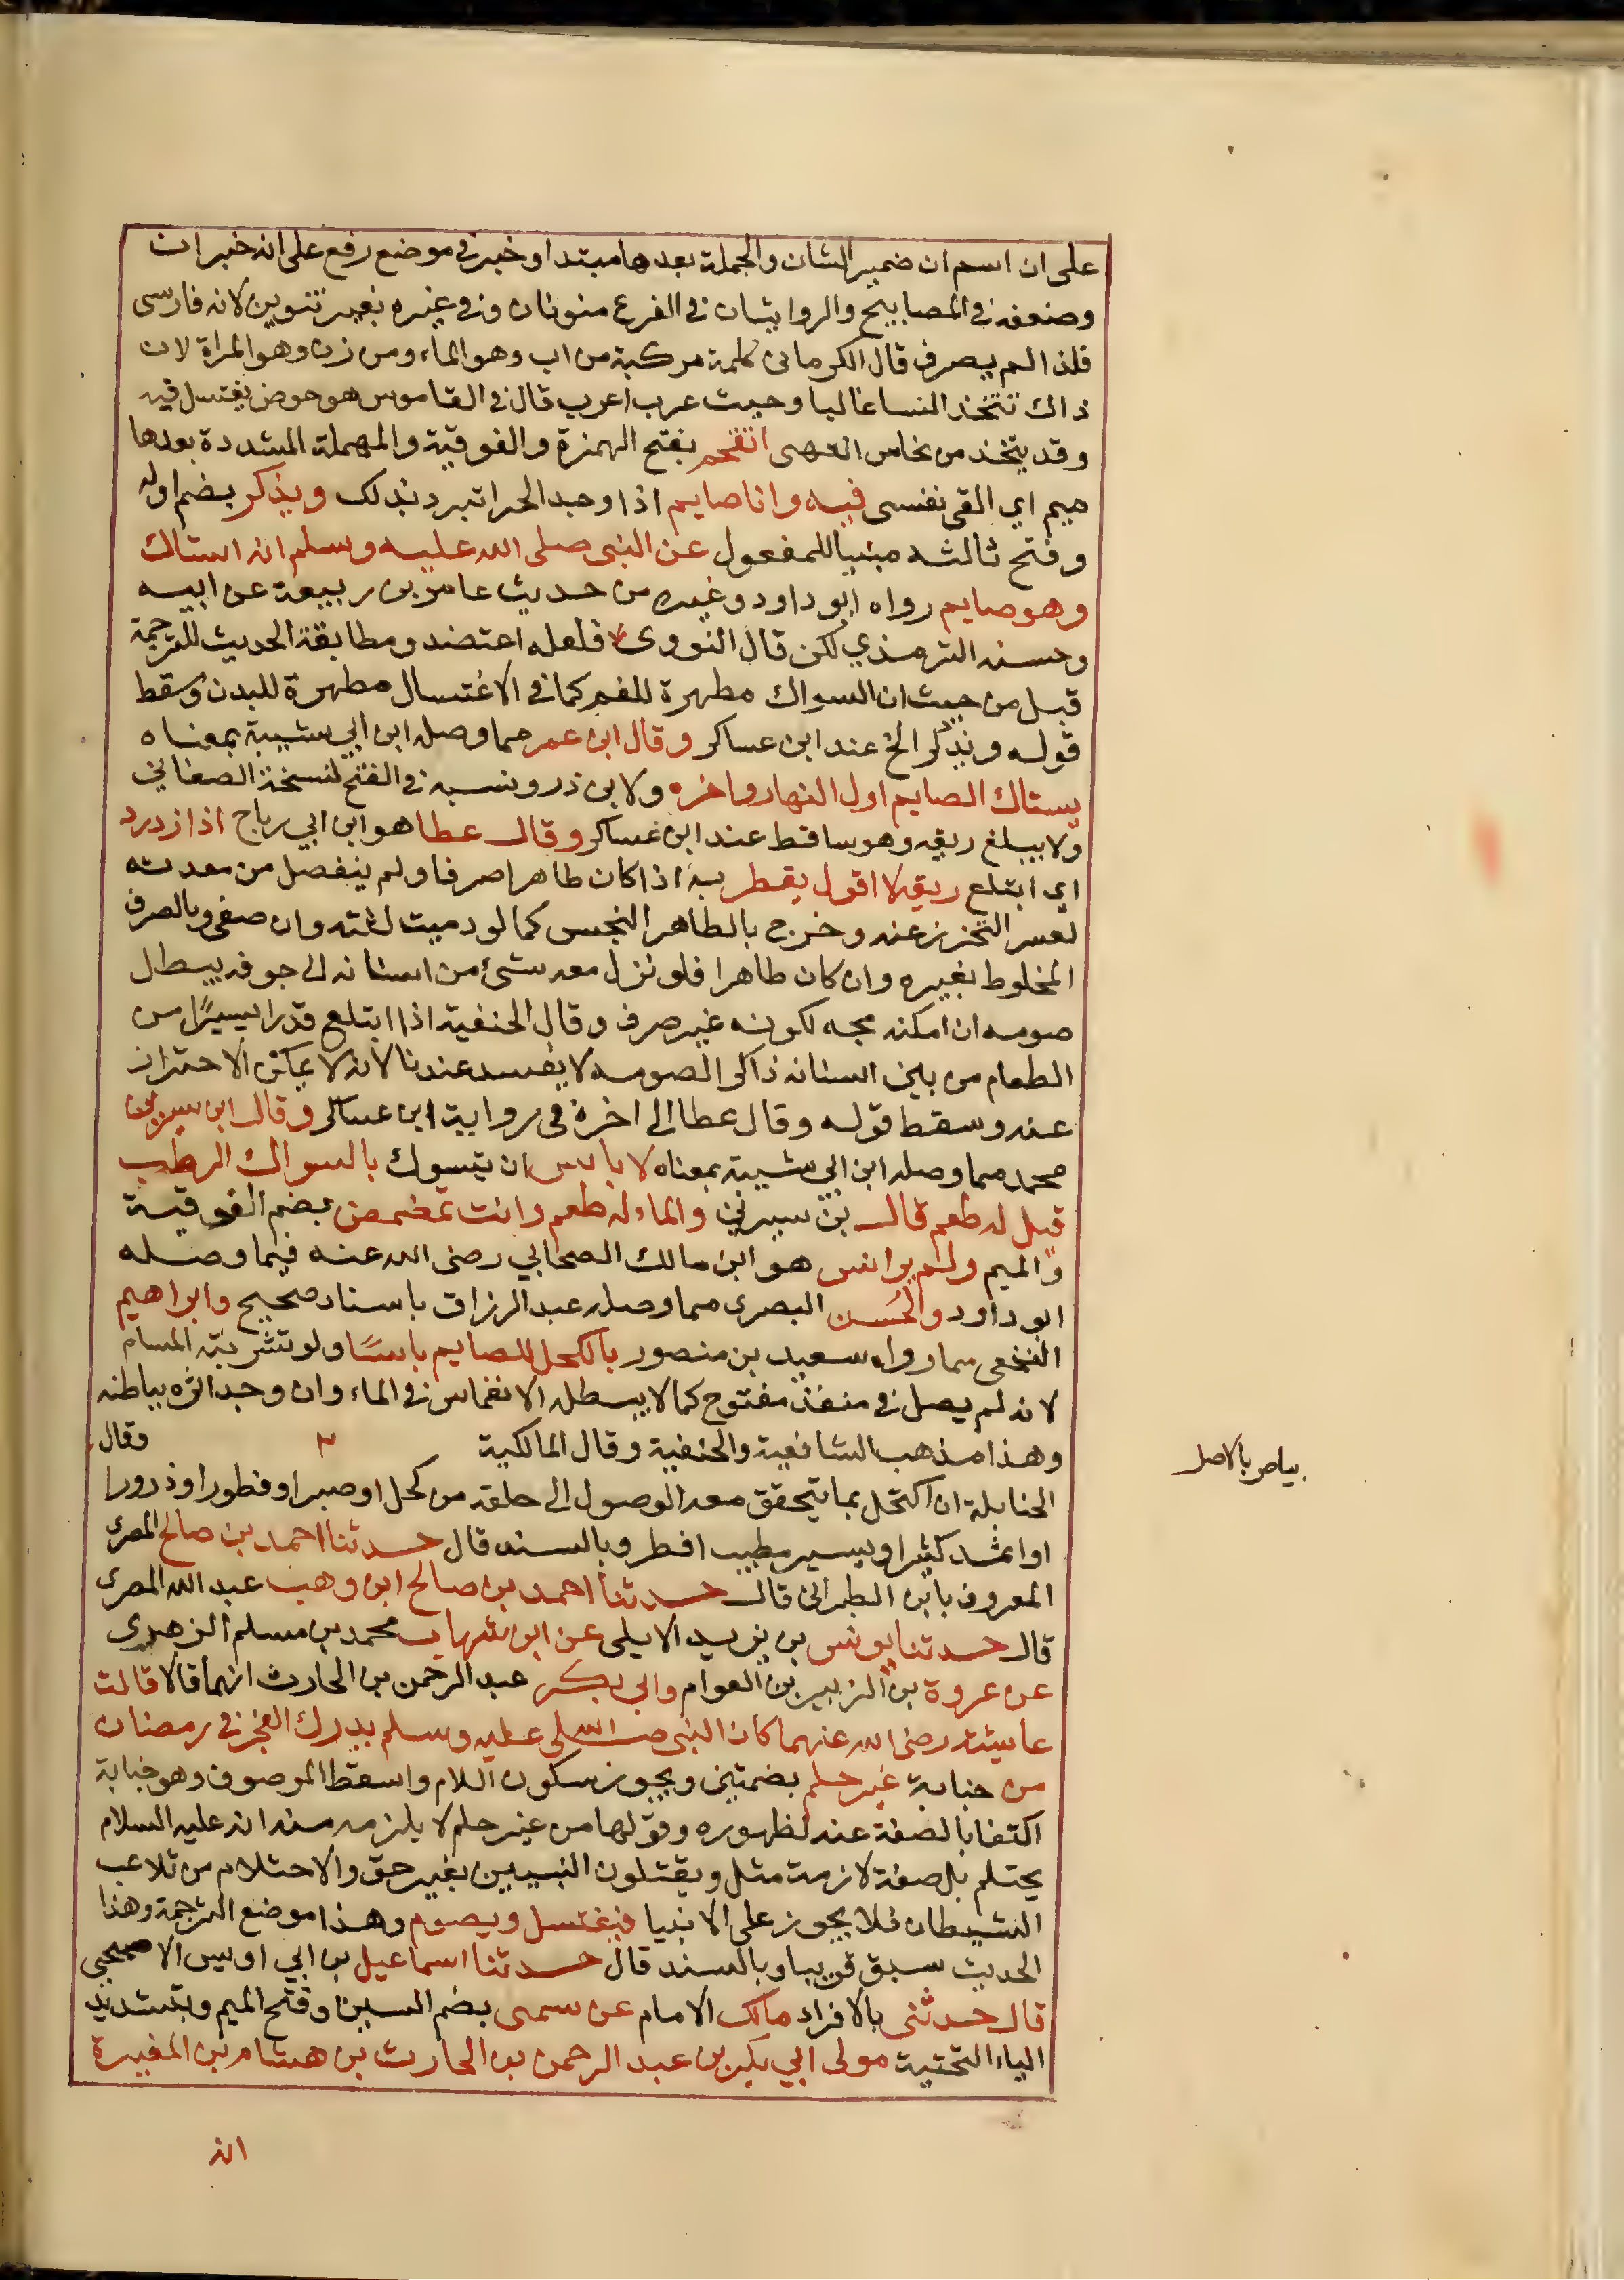 على ان اسم ان ضمير الشان والجملة بعدها مبتدا وخبر في موضع رفع على انه خبر ان
وضعفه في المصابيح والروايتان في الفرع منونتان وفي غيره بغير تنوين لانه فارسي
فلذا لم يصرف قال الكرماني كلمة مركبة من اب وهو الماء ومن زن وهو المراة لان
ذاك تتخذ النسا غالبا وحيث عرب اعرب قال في القاموس هو حوض يغتسل فيه
وقد يتخذ من نحاس انتهى اتقحم بفتح الهمزة والفوقية والمهملة المشددة بعدها
ميم اي القي نفسي فيه وانا صايم اذا وجد الحر اتبرد بذلك ويذكر بضم اوله
وفتح ثالثه مبنيا للمفعول عن النبي صلى الله عليه وسلم انه استاك
وهو صايم رواه ابو داود وغيره من حديث عامر بن ربيعة عن ابيه
وحسنه الترمذي لكن قال النووي فلعله اعتضد ومطابقة الحديث للترجمة
قيل من حيث ان السواك مطهرة للفم كما في الاغتسال مطهرة للبدن وسقط
قوله ويذكر الخ عند ابن عساكر وقال ابن عمر مما وصله ابن ابي شيبة بمعناه
يستاك الصايم اول النهار واخره ولابن ذر ونسبه في الفتح لنسخة الصغاني
ولا يبلغ ريقه وهو ساقط عند ابن عساكر وقال عطا هو ابن ابي رباح اذا ازدرد
اي ابتلع ريقه لا اقول يفطر به اذا كان طاهرا صرفا ولم ينفصل من معدته
لعسر التحرز عنه وخرج بالطاهر النجس كما لو دميت لثته وان صفى وبالصرف
المخلوط بغيره وان كان طاهرا فلو نزل معه شئ من اسنانه الى جوفه بيطل
صومه ان امكنه مجه لكونه غير صرف وقال الحنفية اذا ابتلع قدرا يسيرا من
الطعام من بين اسنانه ذاكرا لصومه لا يفسد عندنا لانه لا يمكن الاحتراز
عنه وسقط قوله وقال عطا الى اخره في رواية ابن عساكر وقال ابن سيرين
محمد مما وصله ابن ابي شيبة بمعناه لا باس ان يتسوك بالسواك الرطب
قيل له طعم قال بن سيرين والما له طعم وانت تمضمض بضم الفوقية
والميم ولم ير انس هو ابن مالك الصحابي رضى الله عنه فيما وصله
ابو داود والحسن البصرى مما وصله عبد الرزاق باسناد صحيح وابراهيم
النخعي مما رواه سعيد بن منصور بالكحل للصايم باسا ولو تشربته المسام
لانه لم يصل في منفذ مفتوح كما لا يبطله الانغماس في الماء وان وجد اثره بباطنه
وهذا مذهب الشافعية والحنفية وقال المالكية وقال
بياض بالاصل
الحنابلة ان اكتحل بما يتحقق معه الوصول الى حلقه من كحل او صبر او قطور او ذرورا
او اثمد كثيرا ويسير مطيب افطر وبالسند قال حدثنا احمد بن صالح المصرى
المعروف بابن الطبراني قال حدثنا احمد بن صالح ابن وهب عبد الله المصرى
قال حدثنا يونس بن يزيد الايلي عن ابن شهاب محمد بن مسلم الزهرى
عن عروة بن الزبير بن العوام وابي بكر عبد الرحمن بن الحارث انهما قالا قالت
عايشة رضى الله عنهما كان النبي صلى الله عليه وسلم يدرك الفجر في رمضان
من جنابة غير حلم بضمتين ويجوز سكون اللام واسقط الموصوف وهو جنابة
اكتفا بالصفة عنه لظهوره وقولها من غير حلم لا يلزم منه انه عليه السلام
يحتلم بل صفة لازمة مثل ويقتلون النبيين بغير حق والاحتلام من تلاعب
الشيطان فلا يجوز على الانبيا فيغتسل ويصوم وهذا موضع الترجمة وهذا
الحديث سبق قريبا وبالسند قال حدثنا اسماعيل بن ابي اويس الاصبحي
قال حدثني بالافراد مالك الامام عن سمى بضم السين وفتح الميم وبتشديد
الياء التحتية مولى ابي بكر بن عبد الرحمن بن الحارث بن هشام بن المغيرة
انه